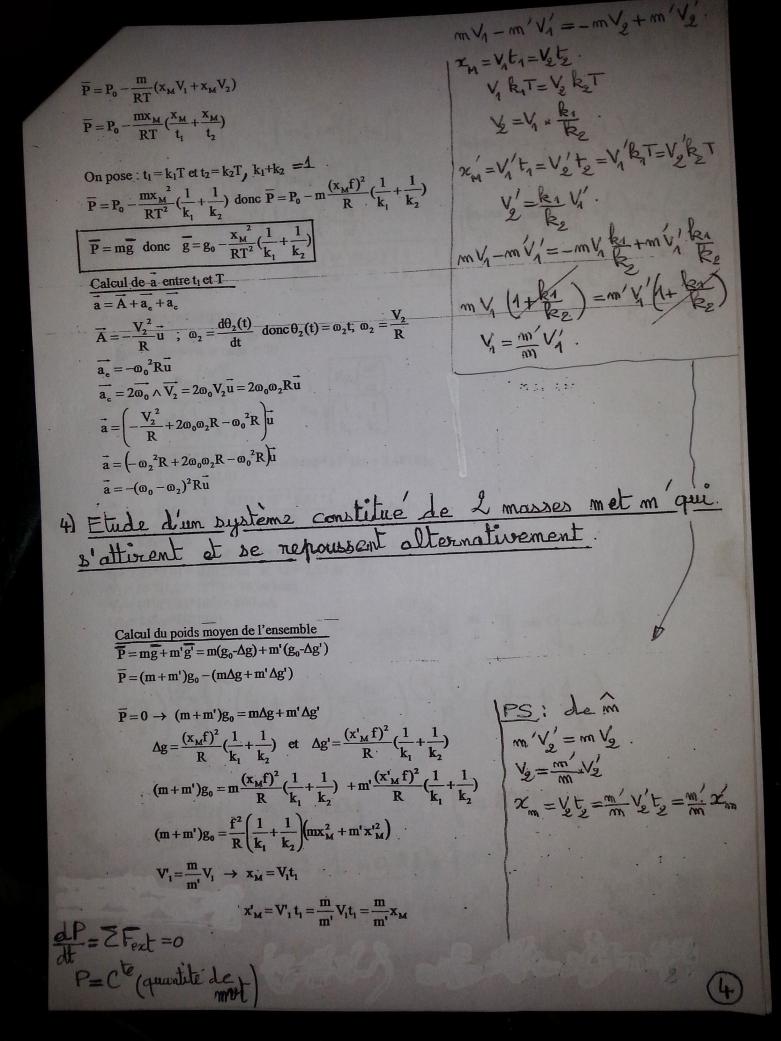 P̅ = P₀ - m/RT (x_M V₁ + x_M V₂)
P̅ = P₀ - mx_M/RT (x_M/t₁ + x_M/t₂)
On pose : t₁ = k₁T et t₂ = k₂T, k₁+k₂ = 1
P̅ = P₀ - mx_M²/RT² (1/k₁ + 1/k₂) donc P̅ = P₀ - m (x_M f)²/R (1/k₁ + 1/k₂)
P̅ = mg̅ donc g̅ = g₀ - x_M²/RT² (1/k₁ + 1/k₂)
Calcul de a⃗ entre t₁ et T
a⃗ = A⃗ + a⃗ₑ + a⃗_c
A⃗ = - V₂²/R u⃗ ; ω₂ = dθ₂(t)/dt donc θ₂(t) = ω₂t, ω₂ = V₂/R
a⃗ₑ = -ω₀²Ru⃗
a⃗_c = 2ω⃗₀ ∧ V⃗₂ = 2ω₀V₂u⃗ = 2ω₀ω₂Ru⃗
a⃗ = (- V₂²/R + 2ω₀ω₂R - ω₀²R) u⃗
a⃗ = (-ω₂²R + 2ω₀ω₂R - ω₀²R) u⃗
a⃗ = -(ω₀ - ω₂)²Ru⃗
mV₁ - m'V'₁ = -mV₂ + m'V'₂
x_M = V₁t₁ = V₂t₂.
V₁k₁T = V₂k₂T
V₂ = V₁ × k₁/k₂
x'_M = V₁'t₁ = V₂'t₂ = V₁'k₁T = V₂'k₂T
V₂' = k₁/k₂ V₁'.
mV₁ - m'V₁' = -mV₁ k₁/k₂ + m'V₁' k₁/k₂
mV₁ (1 + k₁/k₂) = m'V₁' (1 + k₁/k₂)
V₁ = m'/m V₁'.
4) Etude d'un système constitué de 2 masses m et m' qui
s'attirent et se repoussent alternativement.
Calcul du poids moyen de l'ensemble
P̅ = mg̅ + m'g̅' = m(g₀-Δg) + m'(g₀-Δg')
P̅ = (m + m')g₀ - (mΔg + m'Δg')
P̅ = 0 → (m + m')g₀ = mΔg + m'Δg'
Δg = (x_M f)²/R (1/k₁ + 1/k₂) et Δg' = (x'_M f)²/R (1/k₁ + 1/k₂)
(m + m')g₀ = m (x_M f)²/R (1/k₁ + 1/k₂) + m' (x'_M f)²/R (1/k₁ + 1/k₂)
(m + m')g₀ = f²/R (1/k₁ + 1/k₂)(mx²_M + m'x'²_M)
V'₁ = m/m' V₁ → x_M = V₁t₁
x'_M = V'₁t₁ = m/m' V₁t₁ = m/m' x_M
PS : de m̂
m'V₂' = mV₂.
V₂ = m'/m × V₂'
x_m = V₂t₂ = m'/m V₂'t₂ = m'/m x'_m
dP/dt = ΣF_ext = 0
P = Cᵗᵉ (quantité de
mvt)
4